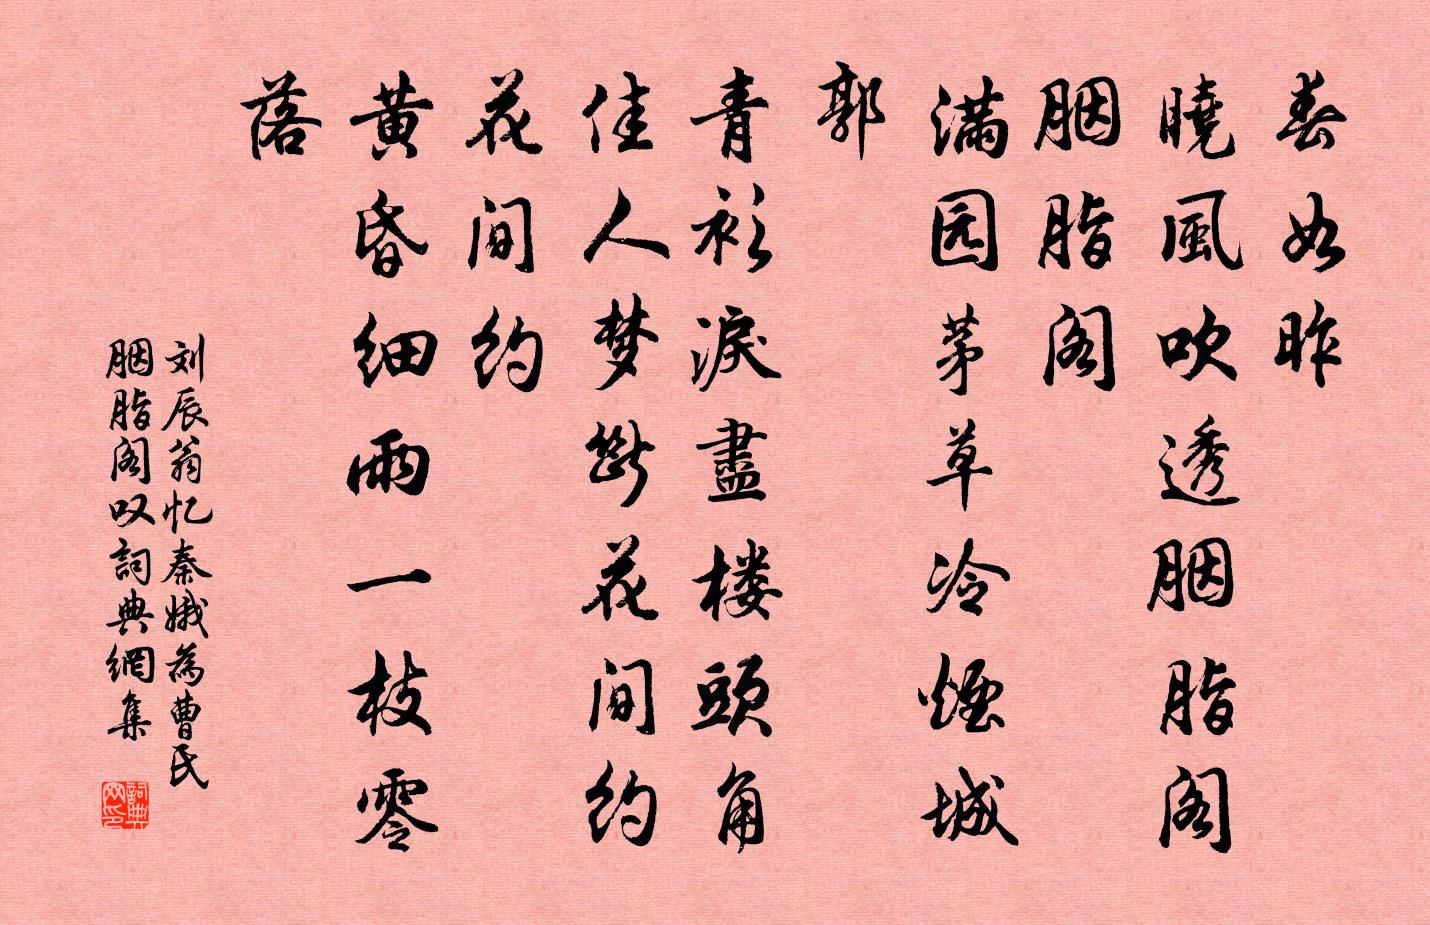 春如昨
曉風吹透胭脂阁
胭脂阁
滿园茅草冷煙城
郭
青衫淚盡楼頭角
佳人梦斷花间约
花间约
黄昏细雨一枝零
落
刘辰翁忆秦娥為曹氏
胭脂阁叹詞典網集
詞典
网印